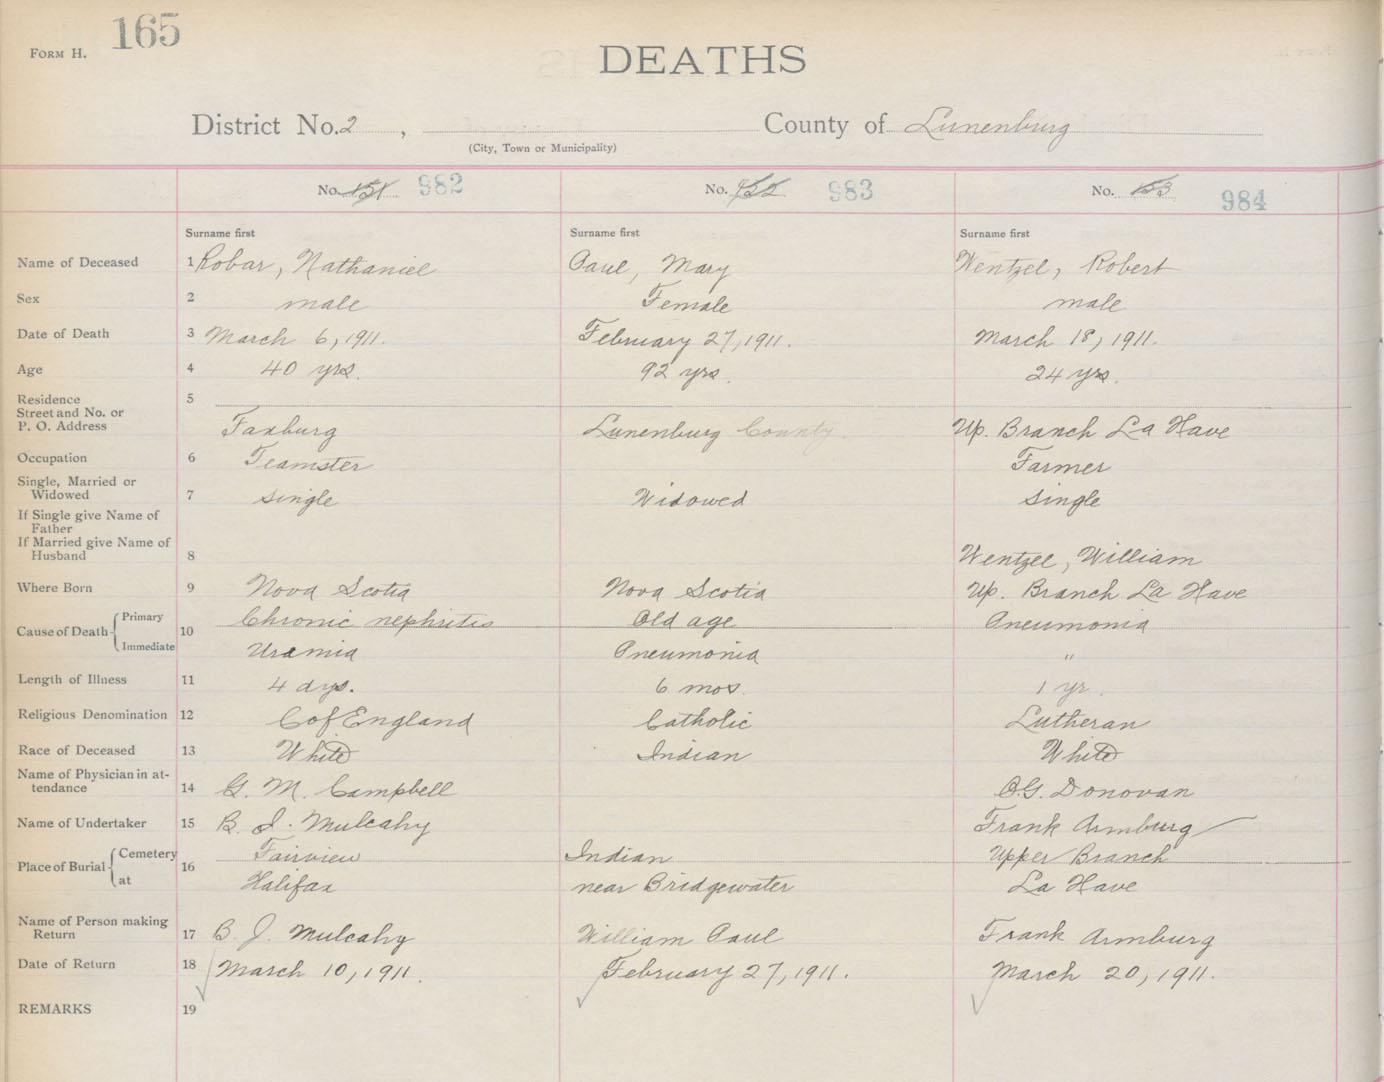 165
FORM H.
DEATHS
District No. 2 , County of Lunenburg
(City, Town or Municipality)
No. 151 982 No. 152 983 No. 153 984
Surname first Surname first Surname first
Name of Deceased 1 Robar, Nathaniel Paul, Mary Wentzel, Robert
Sex 2 male Female male
Date of Death 3 March 6, 1911. February 27, 1911. March 18, 1911.
Age 4 40 yrs. 92 yrs. 24 yrs.
Residence 5
Street and No. or
P. O. Address Faxburg Lunenburg County. Up. Branch La Have
Occupation 6 Teamster Farmer
Single, Married or
Widowed 7 Single Widowed Single
If Single give Name of
Father
If Married give Name of
Husband 8 Wentzel, William
Where Born 9 Nova Scotia Nova Scotia Up. Branch La Have
Cause of Death { Primary 10 Chronic nephritis Old age Pneumonia
Immediate Uramia Pneumonia "
Length of Illness 11 4 dys. 6 mos. 1 yr.
Religious Denomination 12 C of England Catholic Lutheran
Race of Deceased 13 White Indian White
Name of Physician in at-
tendance 14 G. M. Campbell O.G. Donovan
Name of Undertaker 15 B. J. Mulcahy Frank Armburg
Place of Burial { Cemetery 16 Fairview Indian Upper Branch
at Halifax near Bridgewater La Have
Name of Person making
Return 17 B. J. Mulcahy William Paul Frank Armburg
Date of Return 18 March 10, 1911. February 27, 1911. March 20, 1911.
REMARKS 19